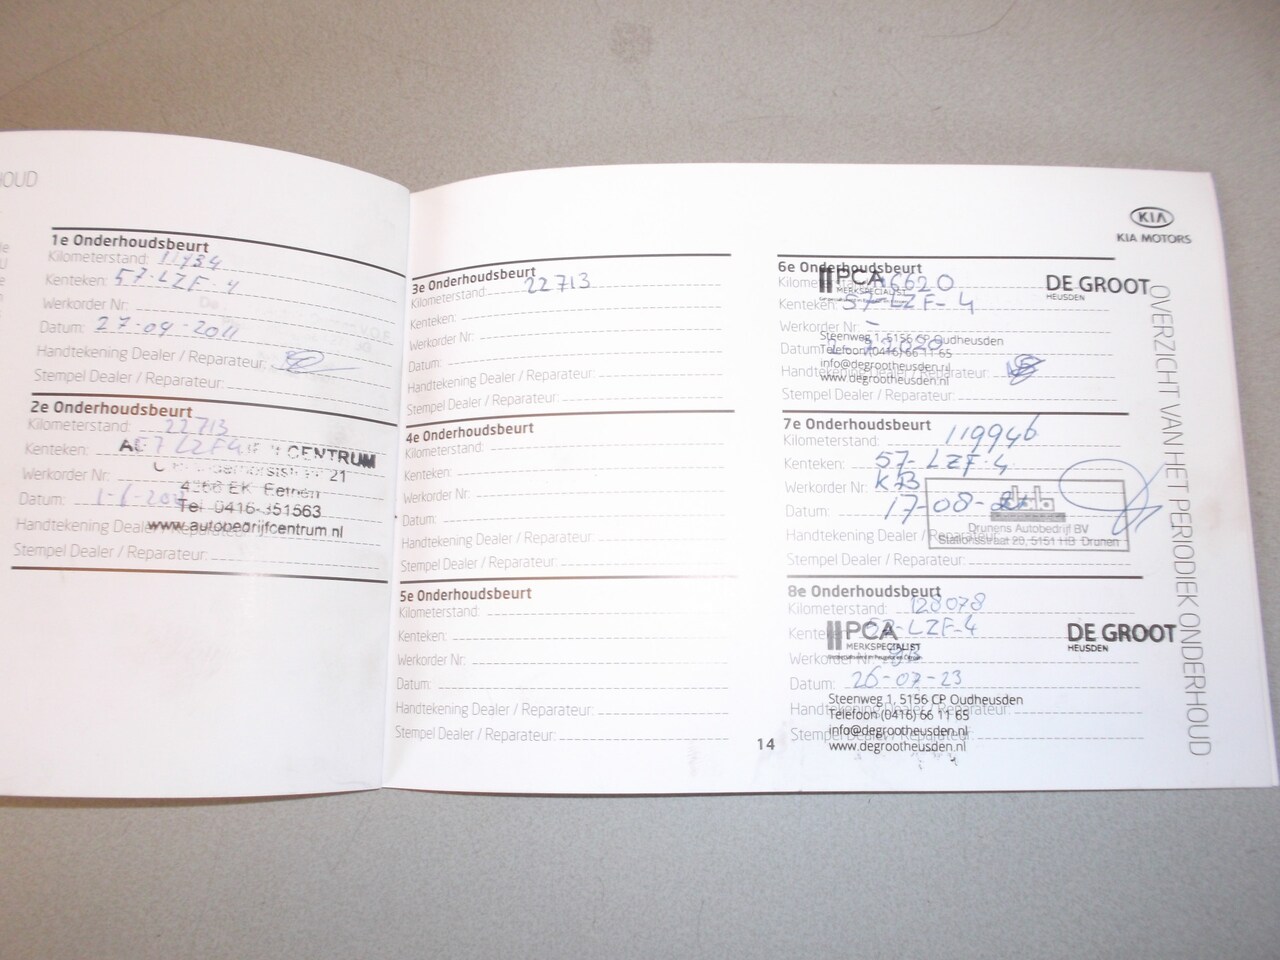 1e Onderhoudsbeurt
Kilometerstand:
Kenteken: 57-LZF-4
Werkorder Nr:
Datum: 27-09-2011
Handtekening Dealer / Reparateur:
Stempel Dealer / Reparateur:
2e Onderhoudsbeurt
Kilometerstand: 22713
Kenteken: 57 LZF4
CENTRUM
Werkorder Nr: 21
EK Eethen
Datum:
Tel 0416-351563
Handtekening Dealer / Reparateur:
www.autobedrijfcentrum.nl
Stempel Dealer / Reparateur:
3e Onderhoudsbeurt
Kilometerstand: 22713
Kenteken:
Werkorder Nr:
Datum:
Handtekening Dealer / Reparateur:
Stempel Dealer / Reparateur:
4e Onderhoudsbeurt
Kilometerstand:
Kenteken:
Werkorder Nr:
Datum:
Handtekening Dealer / Reparateur:
Stempel Dealer / Reparateur:
5e Onderhoudsbeurt
Kilometerstand:
Kenteken:
Werkorder Nr:
Datum:
Handtekening Dealer / Reparateur:
Stempel Dealer / Reparateur:
14
KIA
KIA MOTORS
6e Onderhoudsbeurt
PCA
MERKSPECIALIST
DE GROOT
HEUSDEN
Kenteken: 57-LZF-4
Werkorder Nr: -
Steenweg 1, 5156 CP Oudheusden
Datum:
Telefoon (0416) 66 11 65
info@degrootheusden.nl
Handtekening Dealer / Reparateur:
www.degrootheusden.nl
Stempel Dealer / Reparateur:
7e Onderhoudsbeurt
Kilometerstand: 119946
Kenteken: 57-LZF-4
Werkorder Nr:
Datum: 17-08-
Drunens Autobedrijf BV
Handtekening Dealer / Reparateur:
Stationsstraat 29, 5151 HB Drunen
Stempel Dealer / Reparateur:
8e Onderhoudsbeurt
Kilometerstand: 128078
Kenteken: 57-LZF-4
PCA
MERKSPECIALIST
DE GROOT
HEUSDEN
Werkorder Nr:
Datum: 26-07-23
Steenweg 1, 5156 CP Oudheusden
Handtekening Dealer / Reparateur:
Telefoon (0416) 66 11 65
info@degrootheusden.nl
Stempel Dealer / Reparateur:
www.degrootheusden.nl
OVERZICHT VAN HET PERIODIEK ONDERHOUD